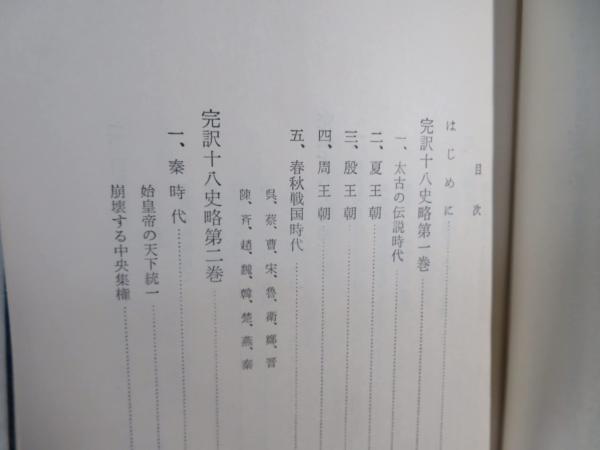 目次
はじめに
完訳十八史略第一巻
一、太古の伝説時代
二、夏王朝
三、殷王朝
四、周王朝
五、春秋戦国時代
呉、蔡、曹、宋、魯、衛、鄭、晋
陳、斉、趙、魏、韓、楚、燕、秦
完訳十八史略第二巻
一、秦時代
始皇帝の天下統一
崩壊する中央集権